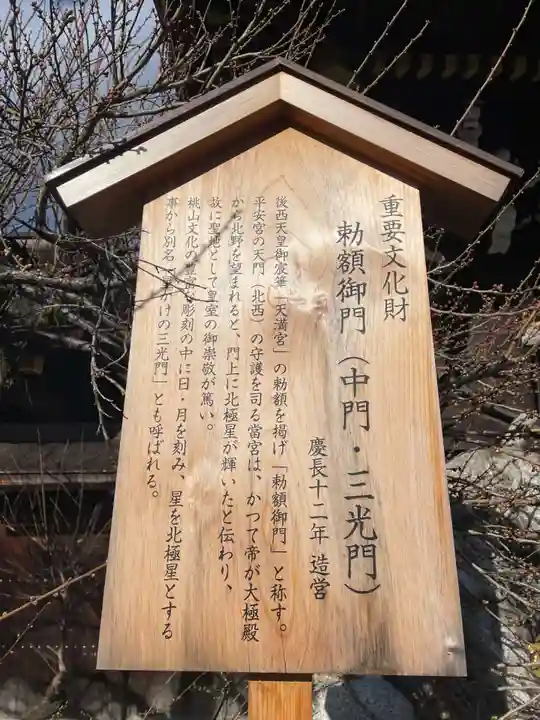 重要文化財
勅額御門（中門・三光門）
慶長十二年 造営
後西天皇御宸筆「天満宮」の勅額を掲げ「勅額御門」と称す。
平安宮の天門（北西）の守護を司る當宮は、かつて帝が大極殿
から北野を望まれると、門上に北極星が輝いたと伝わり、
故に聖地として皇室の御崇敬が篤い。
桃山文化の豊富な彫刻の中に日・月を刻み、星を北極星とする
事から別名「星欠けの三光門」とも呼ばれる。